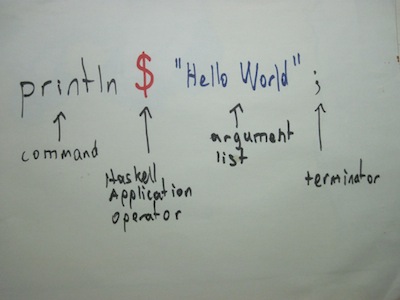 println $ "Hello World" ;
command
Haskell
Application
Operator
argument
list
terminator